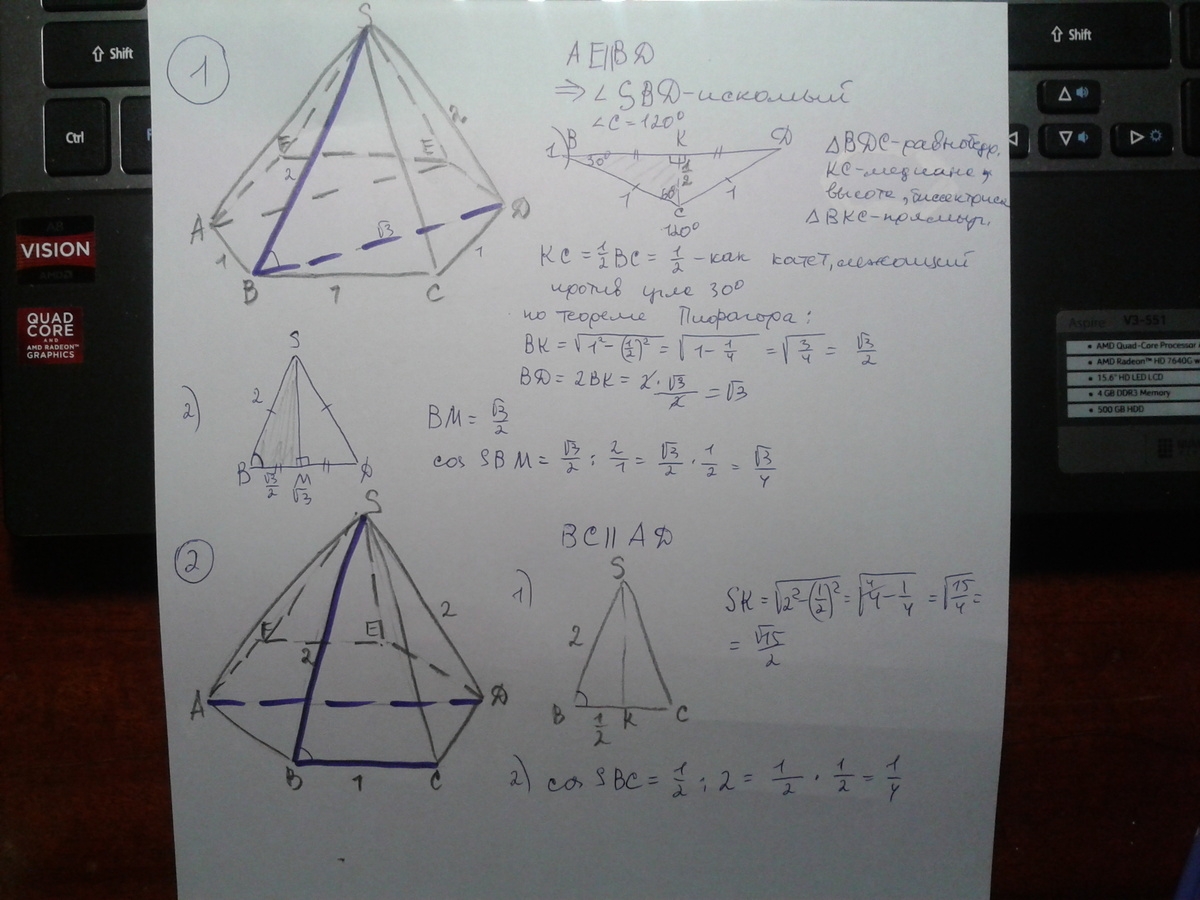 ⇧ Shift
Ctrl
AB
VISION
AMD
QUAD
CORE
AND
AMD RADEON™
GRAPHICS
⇧ Shift
Aspire V3-551
• AMD Quad-Core Processor
• AMD Radeon™ HD 7640G
• 15.6" HD LED LCD
• 4 GB DDR3 Memory
• 500 GB HDD
1
S
2
F
E
2
A
D
√3
1
1
B
1
C
AE||BD
⇒ ∠SBD-искомый
∠C=120°
1)
B
K
D
30°
1/2
60°
1
1
C
120°
△BDC-равнобедр.
KC-медиана,
высота, биссектриса
△BKC-прямоуг.
KC = 1/2 BC = 1/2 - как катет, лежащий
против угла 30°
по теореме Пифагора:
BK = √(1²-(1/2)²) = √(1-1/4) = √(3/4) = √3/2
BD = 2BK = 2·√3/2 = √3
2)
S
2
B
√3/2
M
√3
D
BM = √3/2
cos SBM = √3/2 : 2/1 = √3/2 · 1/2 = √3/4
2
S
2
F
E
2
A
D
B
1
C
BC || AD
1)
S
2
B
1/2
K
C
SK = √(2²-(1/2)²) = √(4-1/4) = √(15/4) =
= √15/2
2) cos SBC = 1/2 : 2 = 1/2 · 1/2 = 1/4